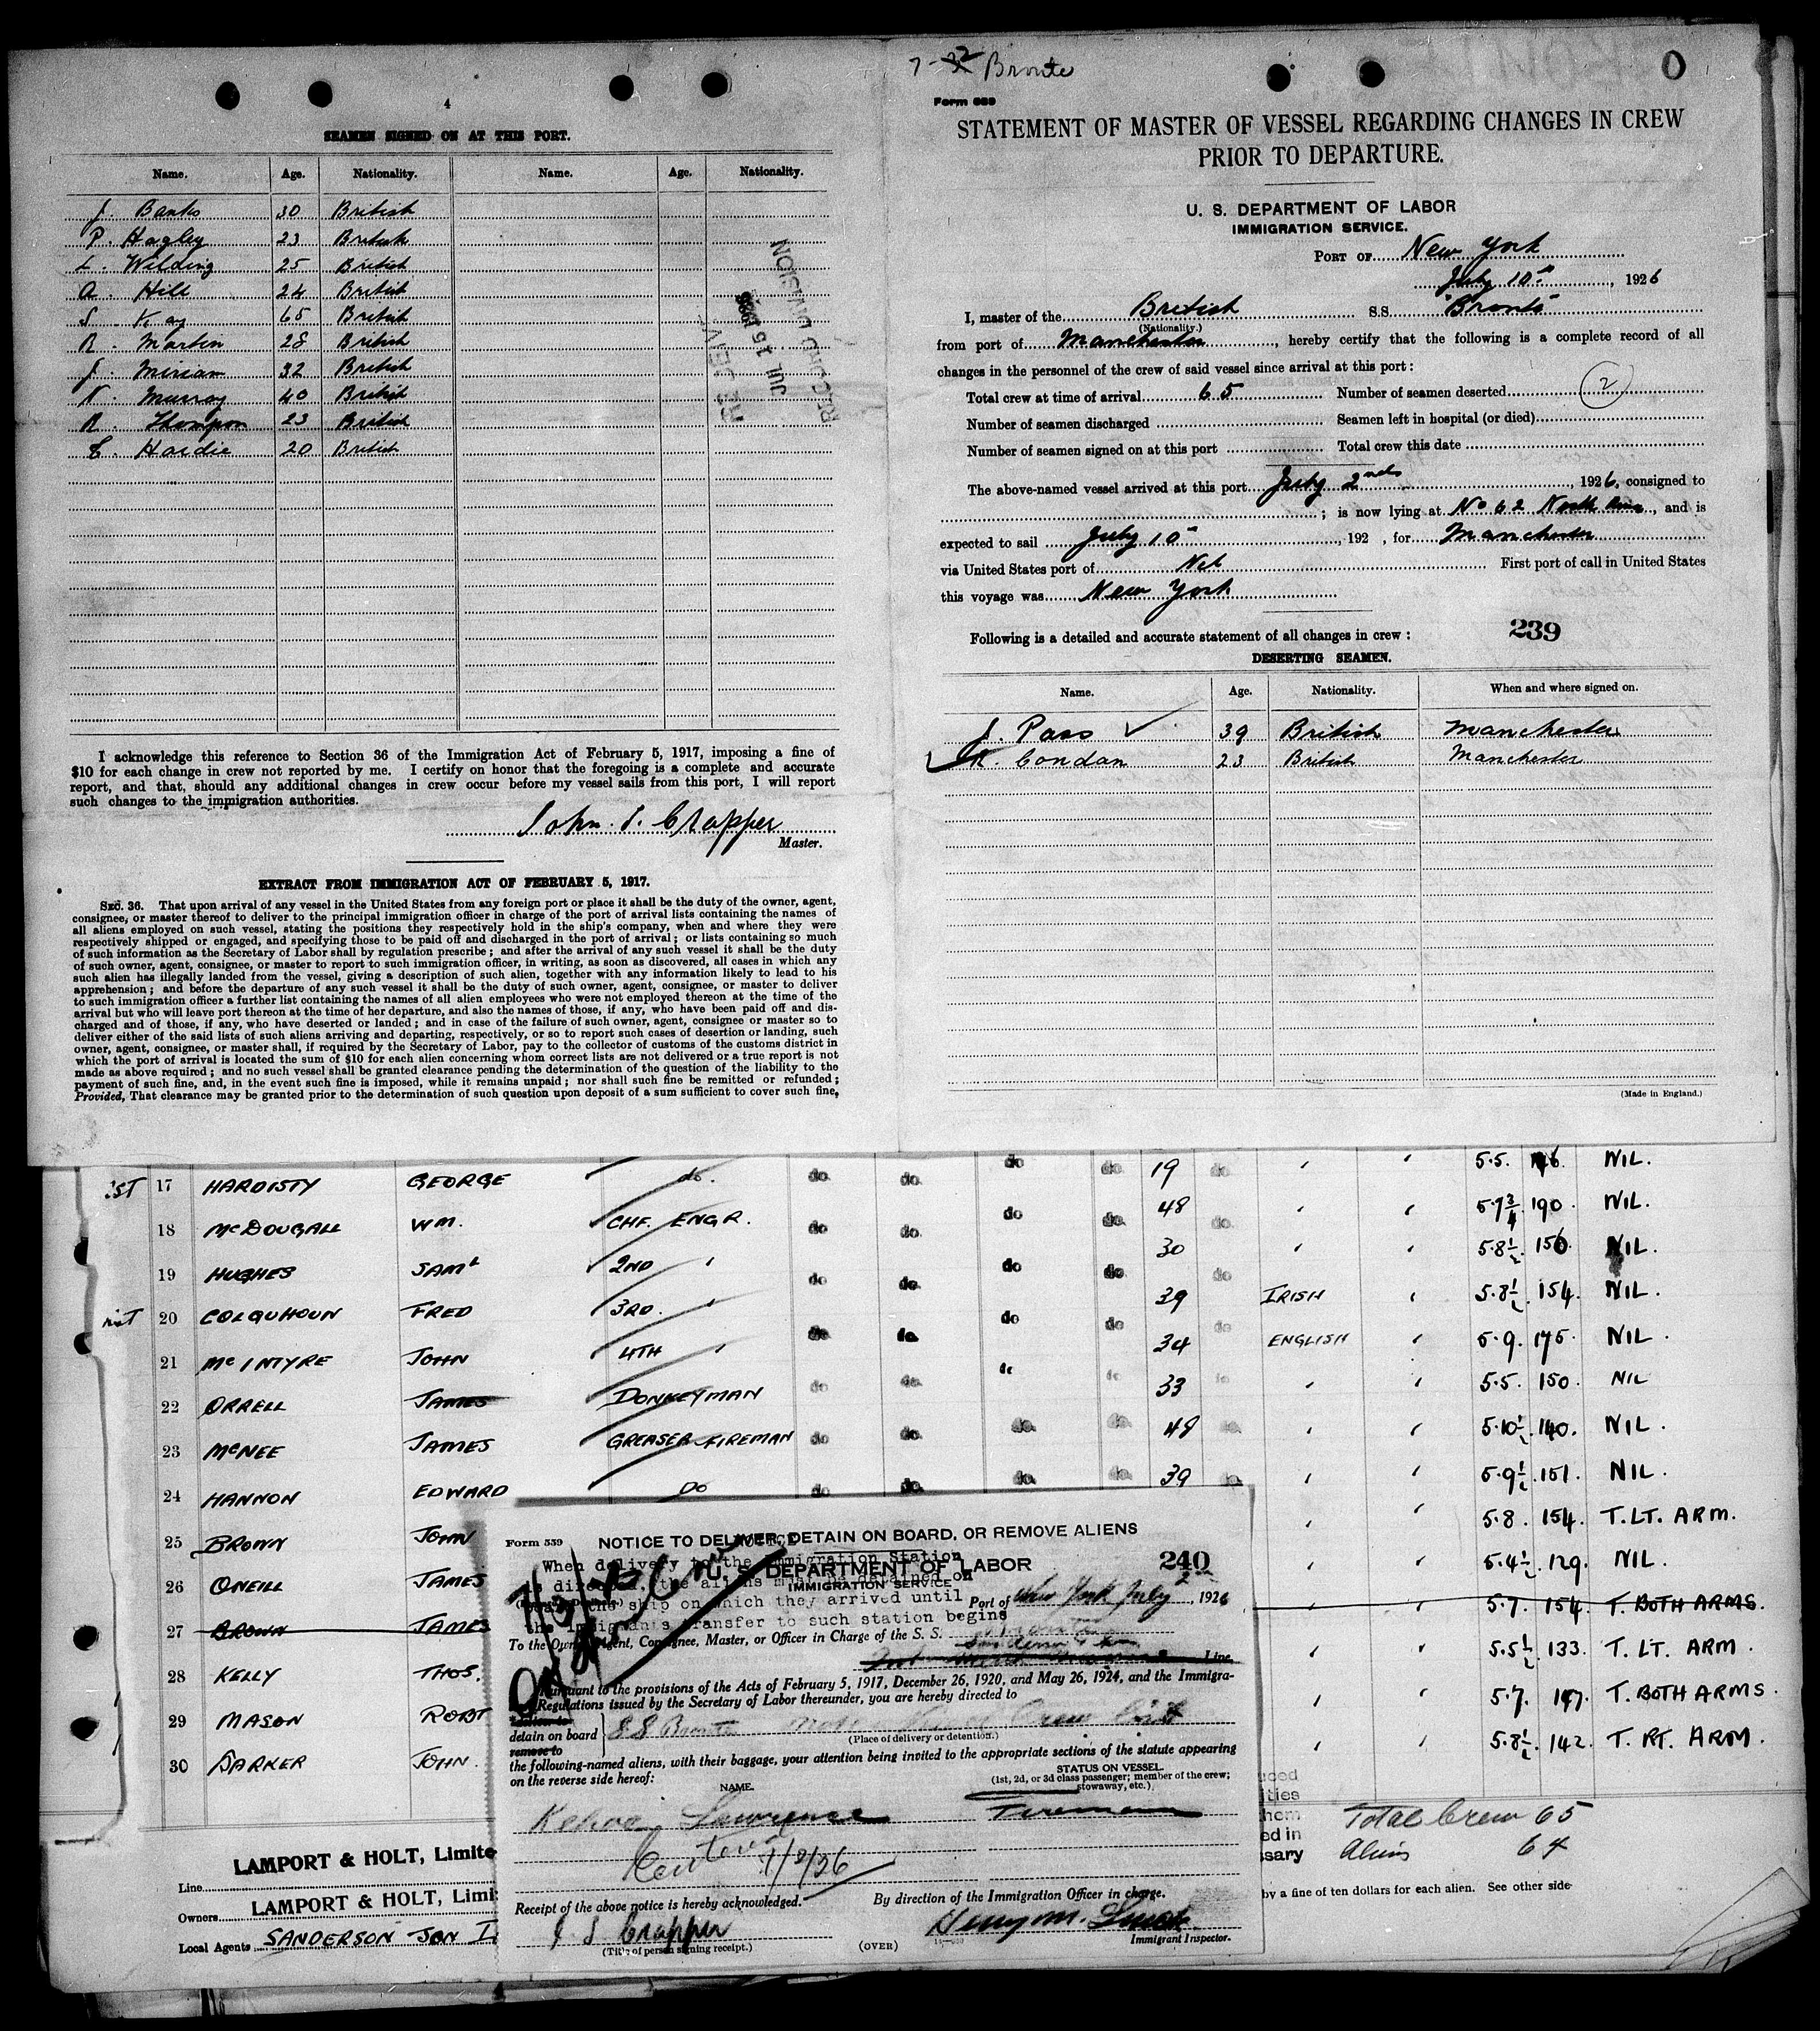 4
SEAMEN SIGNED ON AT THIS PORT.
Name. Age. Nationality. Name. Age. Nationality.
J. Banks 30 British
P. Hagley 23 British
L. Wilding 25 British
A. Hill 24 British
S. Kay 65 British
R. Martin 28 British
J. Miriam 32 British
N. Murray 40 British
R. Thompson 23 British
E. Hardie 20 British
JUL 15 1926
RECORD DIVISION
I acknowledge this reference to Section 36 of the Immigration Act of February 5, 1917, imposing a fine of
$10 for each change in crew not reported by me. I certify on honor that the foregoing is a complete and accurate
report, and that, should any additional changes in crew occur before my vessel sails from this port, I will report
such changes to the immigration authorities.
John. S. Crapper
Master.
EXTRACT FROM IMMIGRATION ACT OF FEBRUARY 5, 1917.
SEC. 36. That upon arrival of any vessel in the United States from any foreign port or place it shall be the duty of the owner, agent,
consignee, or master thereof to deliver to the principal immigration officer in charge of the port of arrival lists containing the names of
all aliens employed on such vessel, stating the positions they respectively hold in the ship's company, when and where they were
respectively shipped or engaged, and specifying those to be paid off and discharged in the port of arrival; or lists containing so much
of such information as the Secretary of Labor shall by regulation prescribe; and after the arrival of any such vessel it shall be the duty
of such owner, agent, consignee, or master to report to such immigration officer, in writing, as soon as discovered, all cases in which any
such alien has illegally landed from the vessel, giving a description of such alien, together with any information likely to lead to his
apprehension; and before the departure of any such vessel it shall be the duty of such owner, agent, consignee, or master to deliver
to such immigration officer a further list containing the names of all alien employees who were not employed thereon at the time of the
arrival but who will leave port thereon at the time of her departure, and also the names of those, if any, who have been paid off and dis-
charged and of those, if any, who have deserted or landed; and in case of the failure of such owner, agent, consignee or master so to
deliver either of the said lists of such aliens arriving and departing, respectively, or so to report such cases of desertion or landing, such
owner, agent, consignee, or master shall, if required by the Secretary of Labor, pay to the collector of customs of the customs district in
which the port of arrival is located the sum of $10 for each alien concerning whom correct lists are not delivered or a true report is not
made as above required; and no such vessel shall be granted clearance pending the determination of the question of the liability to the
payment of such fine, and, in the event such fine is imposed, while it remains unpaid; nor shall such fine be remitted or refunded;
Provided, That clearance may be granted prior to the determination of such question upon deposit of a sum sufficient to cover such fine,
7-2 Bronte
0
Form 689
STATEMENT OF MASTER OF VESSEL REGARDING CHANGES IN CREW
PRIOR TO DEPARTURE.
U. S. DEPARTMENT OF LABOR
IMMIGRATION SERVICE.
PORT OF New York
July 10th, 1926
I, master of the British S.S. "Bronte"
(Nationality.)
from port of Manchester, hereby certify that the following is a complete record of all
changes in the personnel of the crew of said vessel since arrival at this port:
Total crew at time of arrival 65 Number of seamen deserted 2
Number of seamen discharged Seamen left in hospital (or died)
Number of seamen signed on at this port Total crew this date
The above-named vessel arrived at this port July 2nd, 1926, consigned to
; is now lying at No 62 North River, and is
expected to sail July 10th, 192 , for Manchester
via United States port of Nil First port of call in United States
this voyage was New York
Following is a detailed and accurate statement of all changes in crew: 239
DESERTING SEAMEN.
Name. Age. Nationality. When and where signed on.
J. Pass 39 British Manchester
R. Condan 23 British Manchester
(Made in England.)
17 HARDISTY GEORGE do. do do. do do 19 do 5.5. NIL.
18 McDOUGALL WM. CHF. ENGR. do do. do do. 48 do. 5.7¾ 190. NIL.
19 HUGHES SAML 2ND do do do do 30 do 5.8½. 156. NIL.
20 COLQUHOUN FRED 3RD. do do. do do 39 do IRISH 5.8½. 154. NIL.
21 McINTYRE JOHN 4TH do do. 34 ENGLISH 5.9. 175. NIL
22 ORRELL JAMES DONKEYMAN do do. 33 5.5. 150. NIL
23 McNEE JAMES GREASER FIREMAN do do. do do 48 do. 5.10½. 140. NIL.
24 HANNON EDWARD DO do do. do do. 39 do 5.9½. 151. NIL.
25 BROWN JOHN 5.8. 154. T. LT. ARM.
26 ONEILL JAMES 5.4½. 129. NIL.
27 BROWN JAMES 5.7. 154. T. BOTH ARMS.
28 KELLY THOS. 5.5½. 133. T. LT ARM
29 MASON ROBT 5.7. 147. T. BOTH ARMS.
30 BARKER JOHN. 5.8½. 142. T. RT. ARM.
Line LAMPORT & HOLT, Limite
Owners LAMPORT & HOLT, Limi
Local Agents SANDERSON SON
Total Crew 65
Aliens 64
by a fine of ten dollars for each alien. See other side
Form 539 NOTICE TO DELIVER, DETAIN ON BOARD, OR REMOVE ALIENS
NOTICE
When delivery to the Immigration Station
is directed, the aliens must be detained on
board the ship on which they arrived until
the immigrants transfer to such station begins
U. S. DEPARTMENT OF LABOR 240
IMMIGRATION SERVICE
Port of New York July 2, 1926
To the Owner, Agent, Consignee, Master, or Officer in Charge of the S. S. Bronte
Sanderson & Son Line
Pursuant to the provisions of the Acts of February 5, 1917, December 26, 1920, and May 26, 1924, and the Immigra-
Regulations issued by the Secretary of Labor thereunder, you are hereby directed to
detain on board SS Bronte Crew list
(Place of delivery or detention.)
remove to
the following-named aliens, with their baggage, your attention being invited to the appropriate sections of the statute appearing
on the reverse side hereof:
STATUS ON VESSEL
(1st, 2d, or 3d class passenger; member of the crew;
stowaway, etc.)
NAME.
Kehoe Lawrence Fireman
7/2/26
Receipt of the above notice is hereby acknowledged. By direction of the Immigration Officer in charge.
J S Crapper Henry M.
(Title of person signing receipt.) (OVER) Immigrant Inspector.